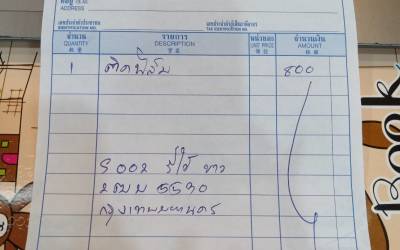 ADDRESS
เลขประจำตัวประชาชน
IDENTIFICATION NO.
เลขประจำตัวผู้เสียภาษีอากร
TAX IDENTIFICATION NO.
จำนวน รายการ หน่วยละ จำนวนเงิน
QUANTITY DESCRIPTION UNIT PRICE AMOUNT
1 ติดฟิล์ม 800
ขาว
5590
กรุงเทพมหานคร
Book